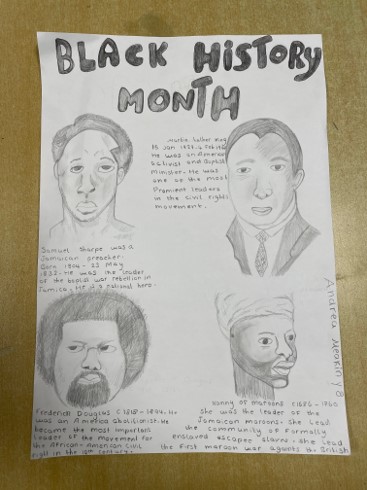 BLACK HISTORY
MONTH
Martin Luther King
15 Jan 1929-4
He was an American
activist and Baptist
Minister. He was
one of the most
Prominent leaders
in the civil rights
movement.
Samuel Sharpe was a
Jamaican preacher.
Born 1804 - 23 May
1832. He was the leader
of the baptist war rebellion in
Jamica. He is a national hero.
Andrea Y8
Frederick Douglas (1818-1894. He
was an America abolitionist. He
became the most important
leader of the movement for
the African-American civil
right in the 19th century.
Nanny of maroons c1686-1760
She was the leader of the
Jamaican maroons. She Lead
the community of Formally
enslaved escapee slaves. She Lead
the first maroon war against the British